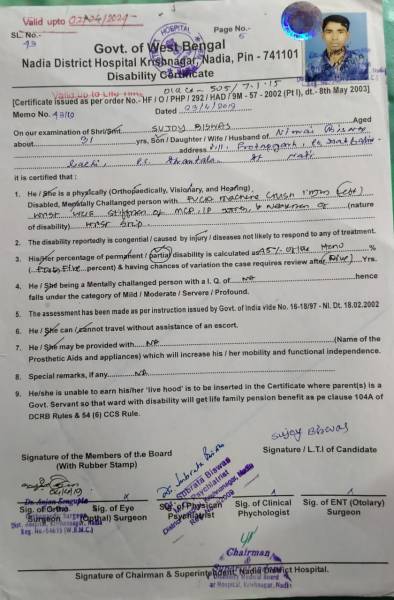 Valid upto 02/04/2024
SL. No.- 43
Page No.-
5
Govt. of West Bengal
Nadia District Hospital Krishnagar, Nadia, Pin - 741101
Disability Certificate
505/7.1.15
[Certificate issued as per order No.- HF / O / PHP / 292 / HAD / 9M - 57 - 2002 (Pt I), dt.- 8th May 2003]
Memo No. 43/19 Dated
On our examination of Shri/Smt. SUJOY BISWAS Aged
about 31 yrs, Son / Daughter / Wife / Husband of Nimai Biswas
address Vill. P.O.
P.S. Dt.
it is certified that :
1. He / She is a physically (Orthopedically, Visionary, and Hearing)
Disabled, Mentally Challanged person with machine crush injury (Left)
wrist with stiffness of MCP, IP joints, & weakness of (nature
of disability) Hand Grip
2. The disability reportedly is congential / caused by injury / diseases not likely to respond to any treatment.
3. His/Her percentage of permanent / partial disability is calculated as 45% of the Hand %
(Forty Five percent) & having chances of variation the case requires review after (Five) Yrs.
4. He / She being a Mentally challanged person with a I. Q. of NA hence
falls under the category of Mild / Moderate / Servere / Profound.
5. The assessment has been made as per instruction issued by Govt. of India vide No. 16-18/97 - NI. Dt. 18.02.2002
6. He / She can / cannot travel without assistance of an escort.
7. He / She may be provided with NA (Name of the
Prosthetic Aids and appliances) which will increase his / her mobility and functional independence.
8. Special remarks, if any NA
9. He/she is unable to earn his/her 'live hood' is to be inserted in the Certificate where parent(s) is a
Govt. Servant so that ward with disability will get life family pension benefit as pe clause 104A of
DCRB Rules & 54 (6) CCS Rule.
Sujoy Biswas
Signature of the Members of the Board
(With Rubster Stamp)
Signature / L.T.I of Candidate
Sig. of Ortho
Surgeon
Sig. of Eye
(Opthal) Surgeon
Sig. of Physican
Psychiatrist
Sig. of Clinical
Phychologist
Sig. of ENT (Otolary)
Surgeon
Chairman
Signature of Chairman & Superintendent, Nadia District Hospital.